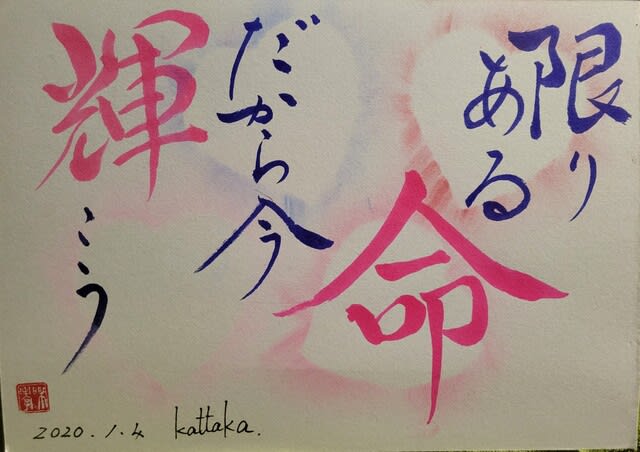 限り
ある
命
だから今
輝
こう
2020.1.4 kattaka.